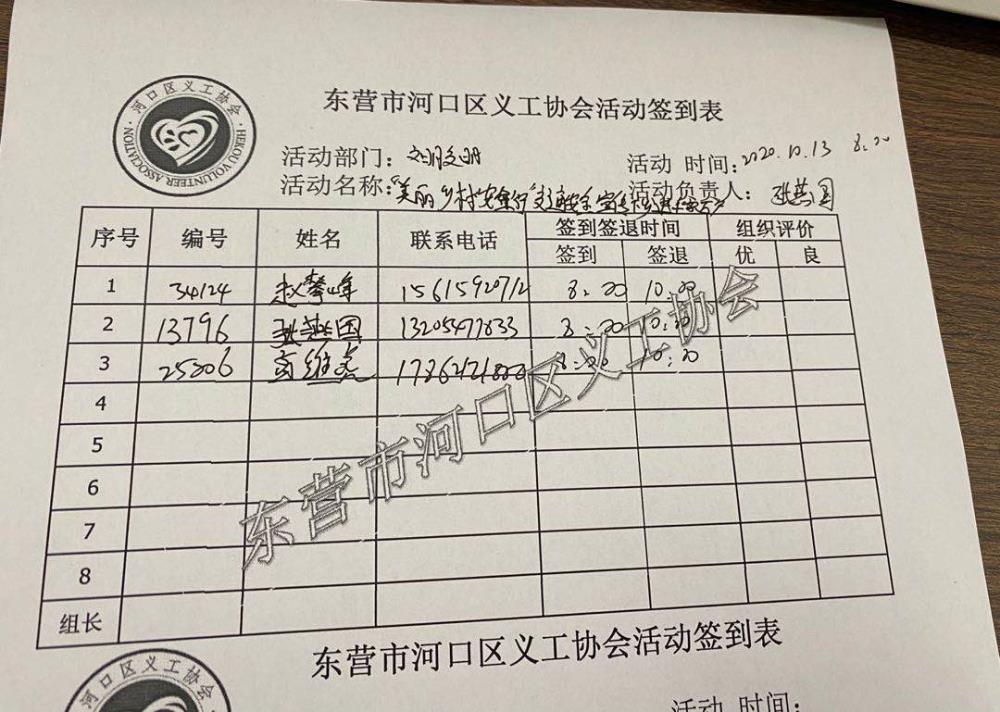 东营市河口区义工协会活动签到表
河口区义工协会
HEKOU VOLUNTEER ASSOCIATION
活动部门：文明交通 活动 时间：2020.10.13 8:00
活动名称："美丽乡村安全行"交通安全宣传 活动负责人：
序号 编号 姓名 联系电话 签到签退时间 组织评价
签到 签退 优 良
1 34124 赵攀峰 15615920712 8:00 10:00
2 13796 国 13205477833 8:00 10:00
3 25806 8:00 10:00
4
5
6
7
8
组长
东营市河口区义工协会
东营市河口区义工协会活动签到表
河口区义工协会
活动 时间：